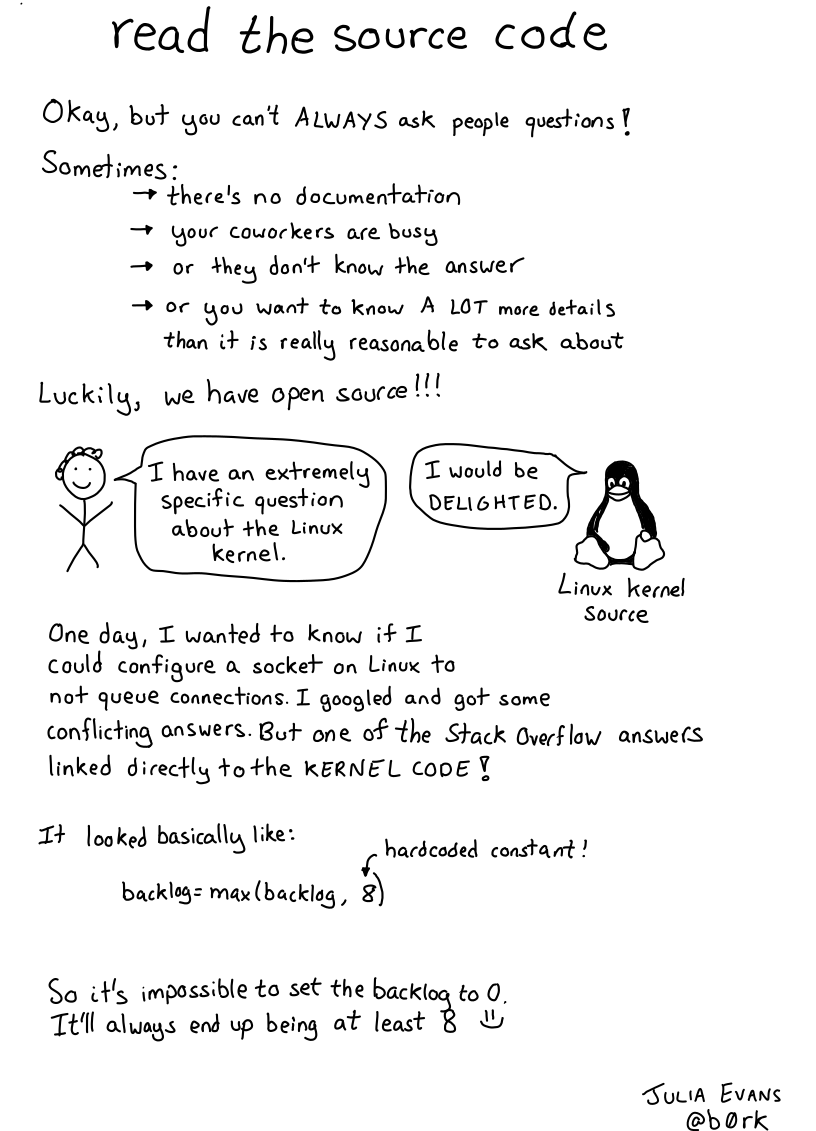 read the source code
Okay, but you can't ALWAYS ask people questions!
Sometimes:
→ there's no documentation
→ your coworkers are busy
→ or they don't know the answer
→ or you want to know A LOT more details
than it is really reasonable to ask about
Luckily, we have open source!!!
I have an extremely
specific question
about the Linux
kernel.
I would be
DELIGHTED.
Linux kernel
source
One day, I wanted to know if I
could configure a socket on Linux to
not queue connections. I googled and got some
conflicting answers. But one of the Stack Overflow answers
linked directly to the KERNEL CODE!
It looked basically like:
hardcoded constant!
backlog= max(backlog, 8)
So it's impossible to set the backlog to 0.
It'll always end up being at least 8
JULIA EVANS
@b0rk